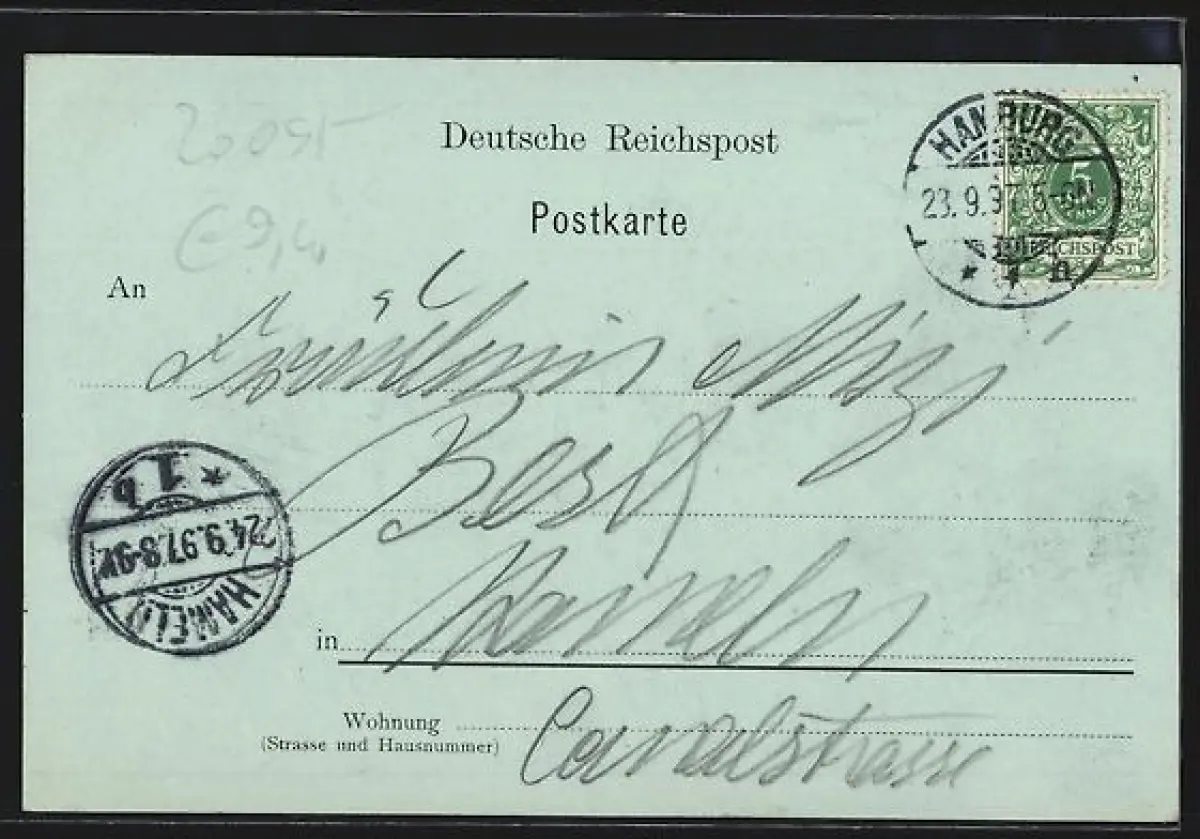 20095
Deutsche Reichspost
HAMBURG
23.9.97. 5-6N
* 1 n.
5
REICHSPOST
Postkarte
€ 9,40
An
Fräulein Mizi
Best
* 1 b
24.9.97. 8-9V
HAMELN
in Hameln
Wohnung
(Strasse und Hausnummer)
Canalstrasse